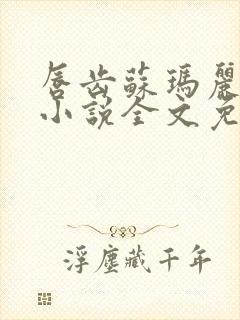 唇齿蘇瑪麗
小說全文免
浮塵藏千年